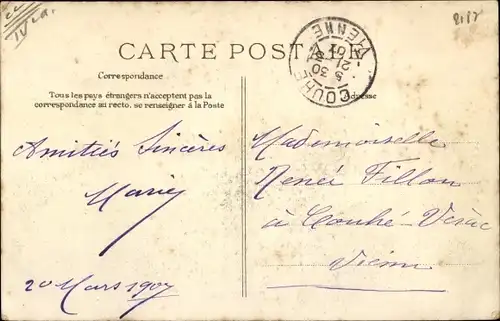 CARTE POSTALE
Correspondance
Tous les pays étrangers n'acceptent pas la
correspondance au recto. se renseigner à la Poste
Adresse
COUHÉ
VIENNE
Amitiés Sincères
Marie
20 Mars 1907
Mademoiselle
Renée Fillon
à Couhé-Vérac
Vienne